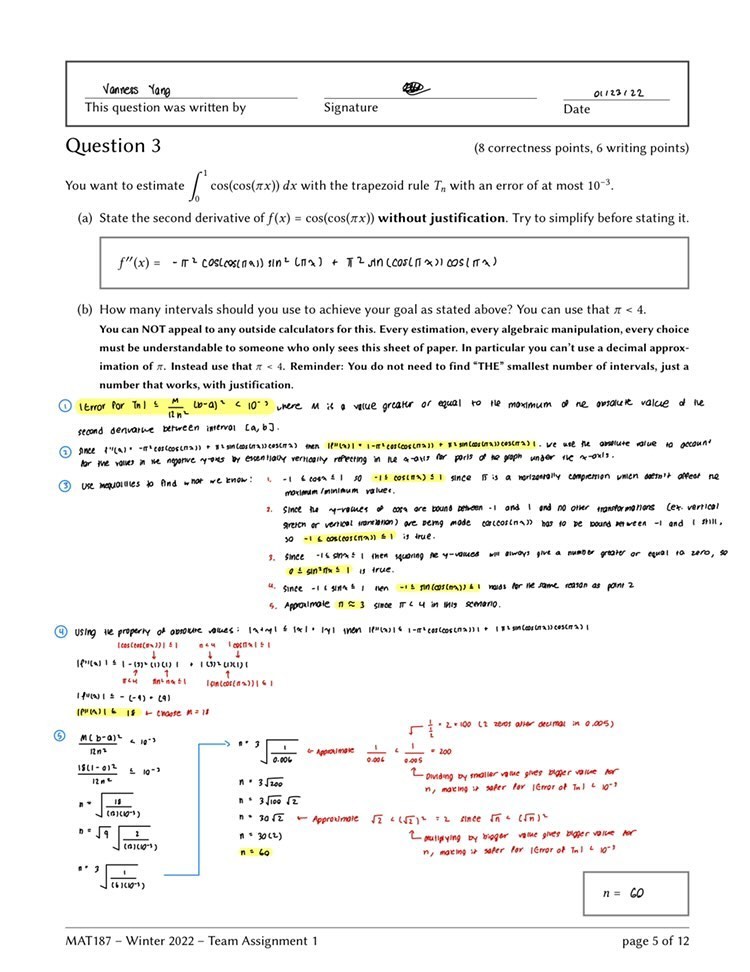 Vanness Yang
01/23/22
This question was written by
Signature
Date
Question 3
(8 correctness points, 6 writing points)
You want to estimate ∫₀¹ cos(cos(πx)) dx with the trapezoid rule Tₙ with an error of at most 10⁻³.
(a) State the second derivative of f(x) = cos(cos(πx)) without justification. Try to simplify before stating it.
f''(x) = -π² cos(cos(πx)) sin²(πx) + π² sin(cos(πx)) cos(πx)
(b) How many intervals should you use to achieve your goal as stated above? You can use that π < 4.
You can NOT appeal to any outside calculators for this. Every estimation, every algebraic manipulation, every choice
must be understandable to someone who only sees this sheet of paper. In particular you can't use a decimal approx-
imation of π. Instead use that π < 4. Reminder: You do not need to find "THE" smallest number of intervals, just a
number that works, with justification.
① |Error for Tn| ≤ M/12n² (b-a)² < 10⁻³ where M is a value greater or equal to the maximum of the absolute value of the
second derivative between interval [a, b].
② Since f''(x) = -π² cos(cos(πx)) + π² sin(cos(πx)) cos(πx) then |f''(x)| = |-π² cos(cos(πx)) + π² sin(cos(πx)) cos(πx)|. We use the absolute value to account
for the values in the negative y-axis by essentially vertically reflecting in the x-axis for parts of the graph under the x-axis.
③ Use inequalities to find what we know: 1. -1 ≤ cosx ≤ 1 so -1 ≤ cos(πx) ≤ 1 since π is a horizontally compression which doesn't affect the
maximum/minimum values.
2. Since the y-values of cosx are bound between -1 and 1 and no other transformations (ex. vertical
stretch or vertical translation) are being made cos(cos(πx)) has to be bound between -1 and 1 still,
so -1 ≤ cos(cos(πx)) ≤ 1 is true.
3. Since -1 ≤ sinx ≤ 1 then squaring the y-values will always give a number greater or equal to zero, so
0 ≤ sin²πx ≤ 1 is true.
4. Since -1 ≤ sinx ≤ 1 then -1 ≤ sin(cos(πx)) ≤ 1 holds for the same reason as point 2
5. Approximate π ≈ 3 since π < 4 in this scenario.
④ Using the property of absolute values: |x+y| ≤ |x| + |y| then |f''(x)| ≤ |-π² cos(cos(πx))| + |π² sin(cos(πx)) cos(πx)|
|cos(cos(πx))| ≤ 1 π<4 |cos πx| ≤ 1
|f''(x)| ≤ |-(3)² (1)(1)| + |(3)² (1)(1)|
π<4 sin²πx ≤ 1 |sin(cos(πx))| ≤ 1
|f''(x)| ≤ -(-9) + (9)
|f''(x)| ≤ 18 ← choose M = 18
⑤ M(b-a)²/12n² < 10⁻³
18(1-0)²/12n² ≤ 10⁻³
n = √(18/(12)(10⁻³))
n = √9 √(2/(12)(10⁻³))
n = 3 √(1/(6)(10⁻³))
n = 3 √(1/0.006) ← Approximate 1/0.006 < 1/0.005 = 200
= 2×100 (2 zeros after decimal in 0.005)
Dividing by smaller value gives bigger value for
n, making it safer for |Error of Tn| < 10⁻³
n = 3√200
n = 3√100 √2
n = 30√2 ← Approximate √2 < (√2)² = 2 since √n < (√n)²
n = 30(2)
Multiplying by bigger value gives bigger value for
n, making it safer for |Error of Tn| < 10⁻³
n = 60
n = 60
MAT187 – Winter 2022 – Team Assignment 1
page 5 of 12